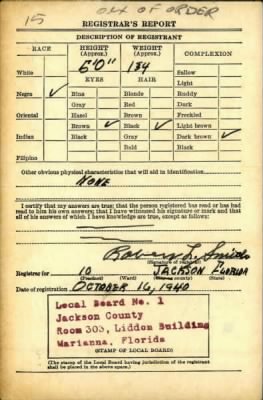 15
OUT OF ORDER
REGISTRAR'S REPORT
DESCRIPTION OF REGISTRANT
RACE HEIGHT (Approx.) WEIGHT (Approx.) COMPLEXION
6'0" 134
White Sallow
EYES HAIR Light
Negro ✓ Blue Blonde Ruddy
Gray Red Dark
Oriental Hazel Brown Freckled
Brown ✓ Black ✓ Light brown
Indian Black Gray Dark brown ✓
Bald Black
Filipino
Other obvious physical characteristics that will aid in identification
NONE
I certify that my answers are true; that the person registered has read or has had
read to him his own answers; that I have witnessed his signature or mark and that
all of his answers of which I have knowledge are true, except as follows:
L. Smith
(Signature of registrar)
Registrar for 10 JACKSON FLORIDA
(Precinct) (Ward) (City or county) (State)
Date of registration OCTOBER 16, 1940
Local Board No. 1
Jackson County
Room 303, Liddon Building
Marianna, Florida
(STAMP OF LOCAL BOARD)
(The stamp of the Local Board having jurisdiction of the registrant
shall be placed in the above space.)